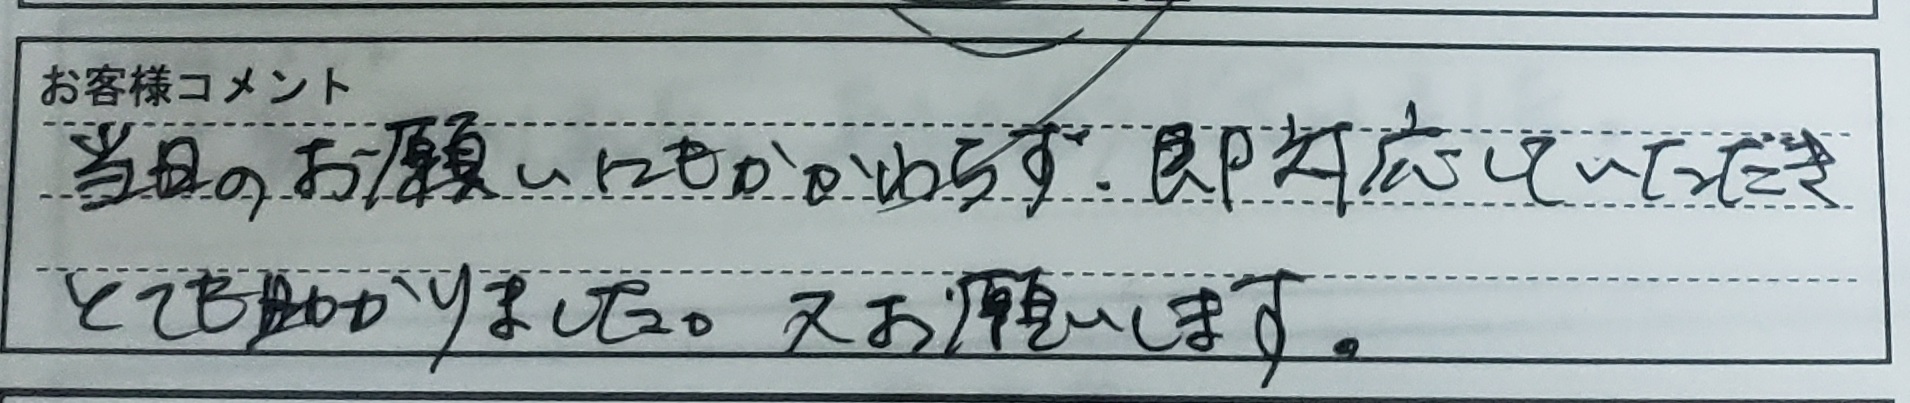 お客様コメント
当日のお願いにもかかわらず、即対応していただき
とても助かりました。又お願いします。